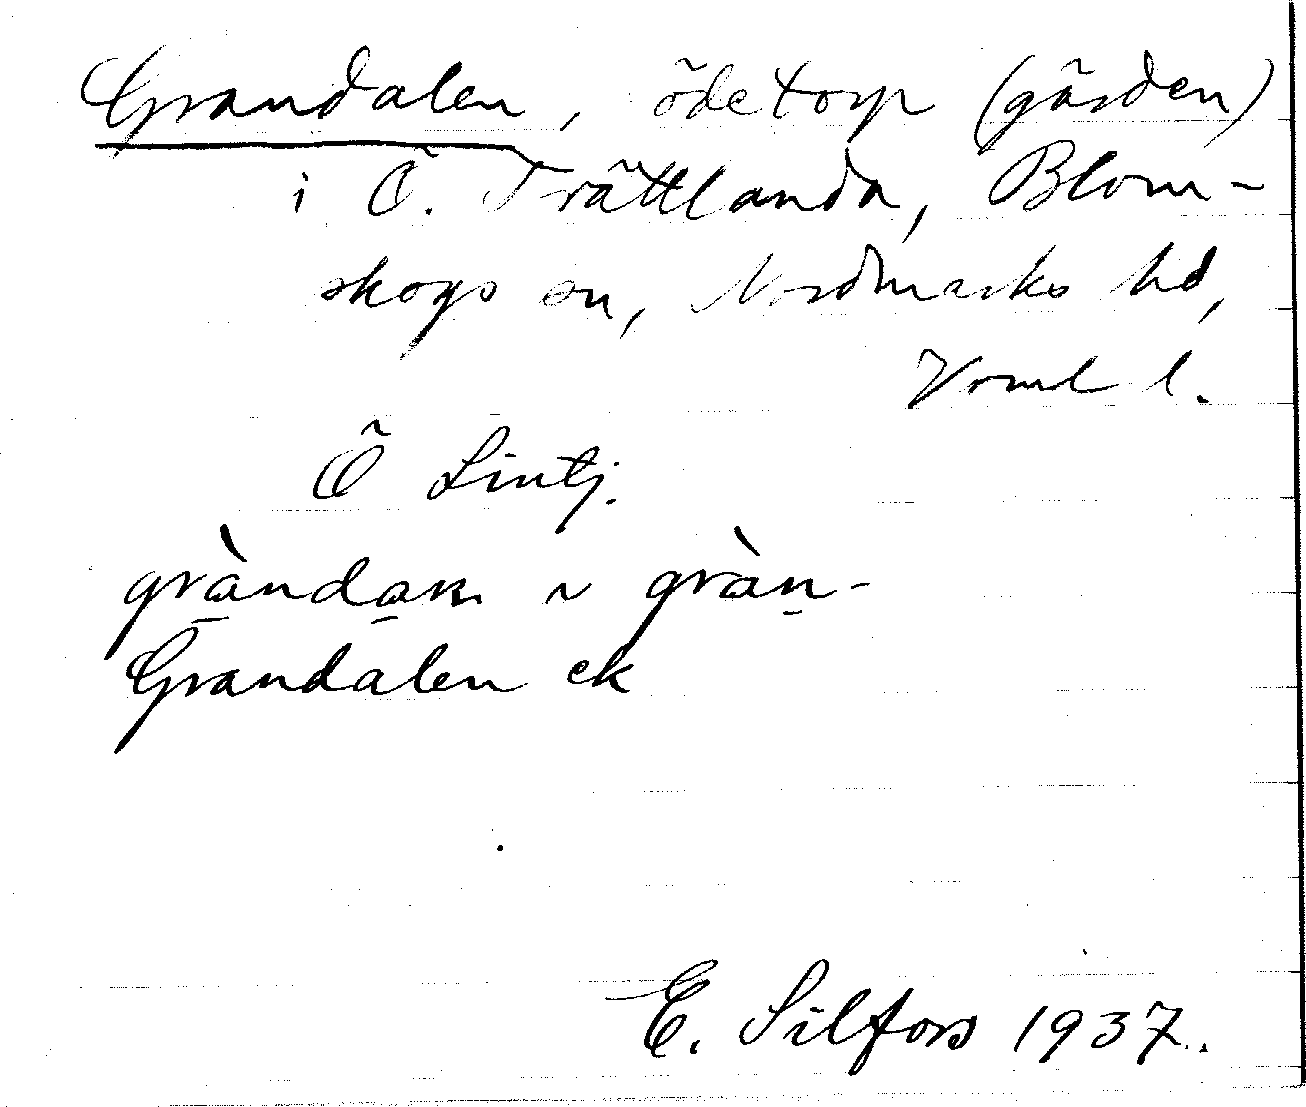 Grandalen, ödetorp (gården)
i Ö. Trättlanda, Blom-
skogs sn, Nordmarks hd,
Vrml l.
Ö Lintj.
gràndaɳ ~ gràn-
Grandalen ek
E. Silfors 1937.